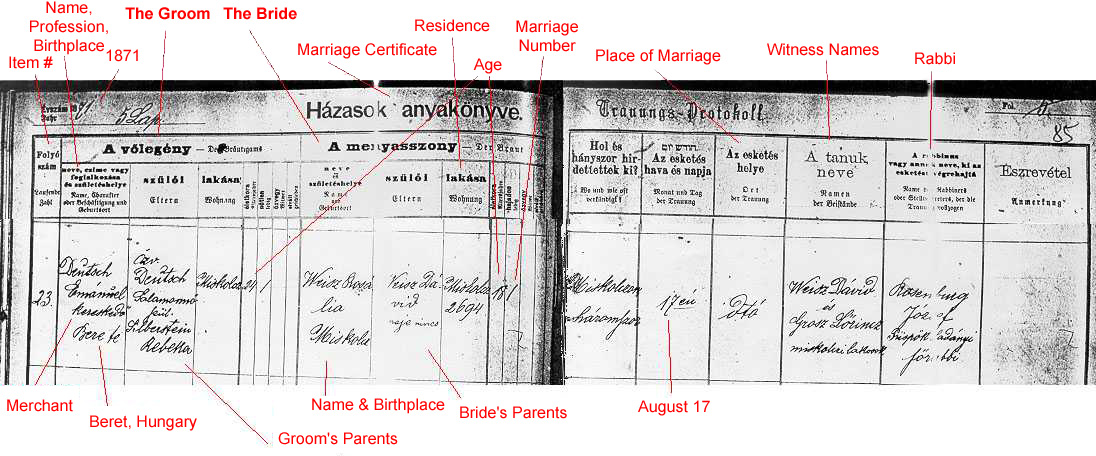 Name,
Profession,
Birthplace
The Groom
The Bride
Residence
Marriage
Number
Item #
1871
Marriage Certificate
Age
Place of Marriage
Witness Names
Rabbi
Jahr
5 Lap
Házasok anyakönyve.
Trauungs-Protokoll.
Fol.
85
Folyó
szám
Laufende
Zahl
A vőlegény — Des Bräutigams
A menyasszony — Der Braut
neve, czime vagy
foglalkozása
és születéshelye
Name, Charakter
oder Beschäftigung und
Geburtsort
szülői
Eltern
lakása
Wohnung
neve
és
születéshelye
Name
und
Geburtsort
szülői
Eltern
lakása
Wohnung
Hol és
hányszor hir-
dettettek ki?
Wo und wie oft
verkündigt?
Az esketés
hava és napja
Monat und Tag
der Trauung
Az esketés
helye
Ort
der Trauung
A tanuk
neve
Namen
der Beistände
A rabbinus
vagy annak neve, ki az
esketést végrehajtá
Name des Rabbiners
oder Stellvertreters, der die
Trauung vollzogen
Észrevétel
Anmerkung
23.
Deutsch
Emánuel
kereskedő
Deutsch
Salamon
Silberstein
Rebeka
Miskolcz
24
1
Weisz Rozá
lia
Weisz Dá
vid
neje nincs
Miskolcz
2694
18
1
Miskolczon
háromszor
17én
Weisz David
és
Grosz Lőrincz
miskolczi lakosok
Rosenburg
József
Püspök ladányi
főrabbi
Merchant
Beret, Hungary
Groom's Parents
Name & Birthplace
Bride's Parents
August 17